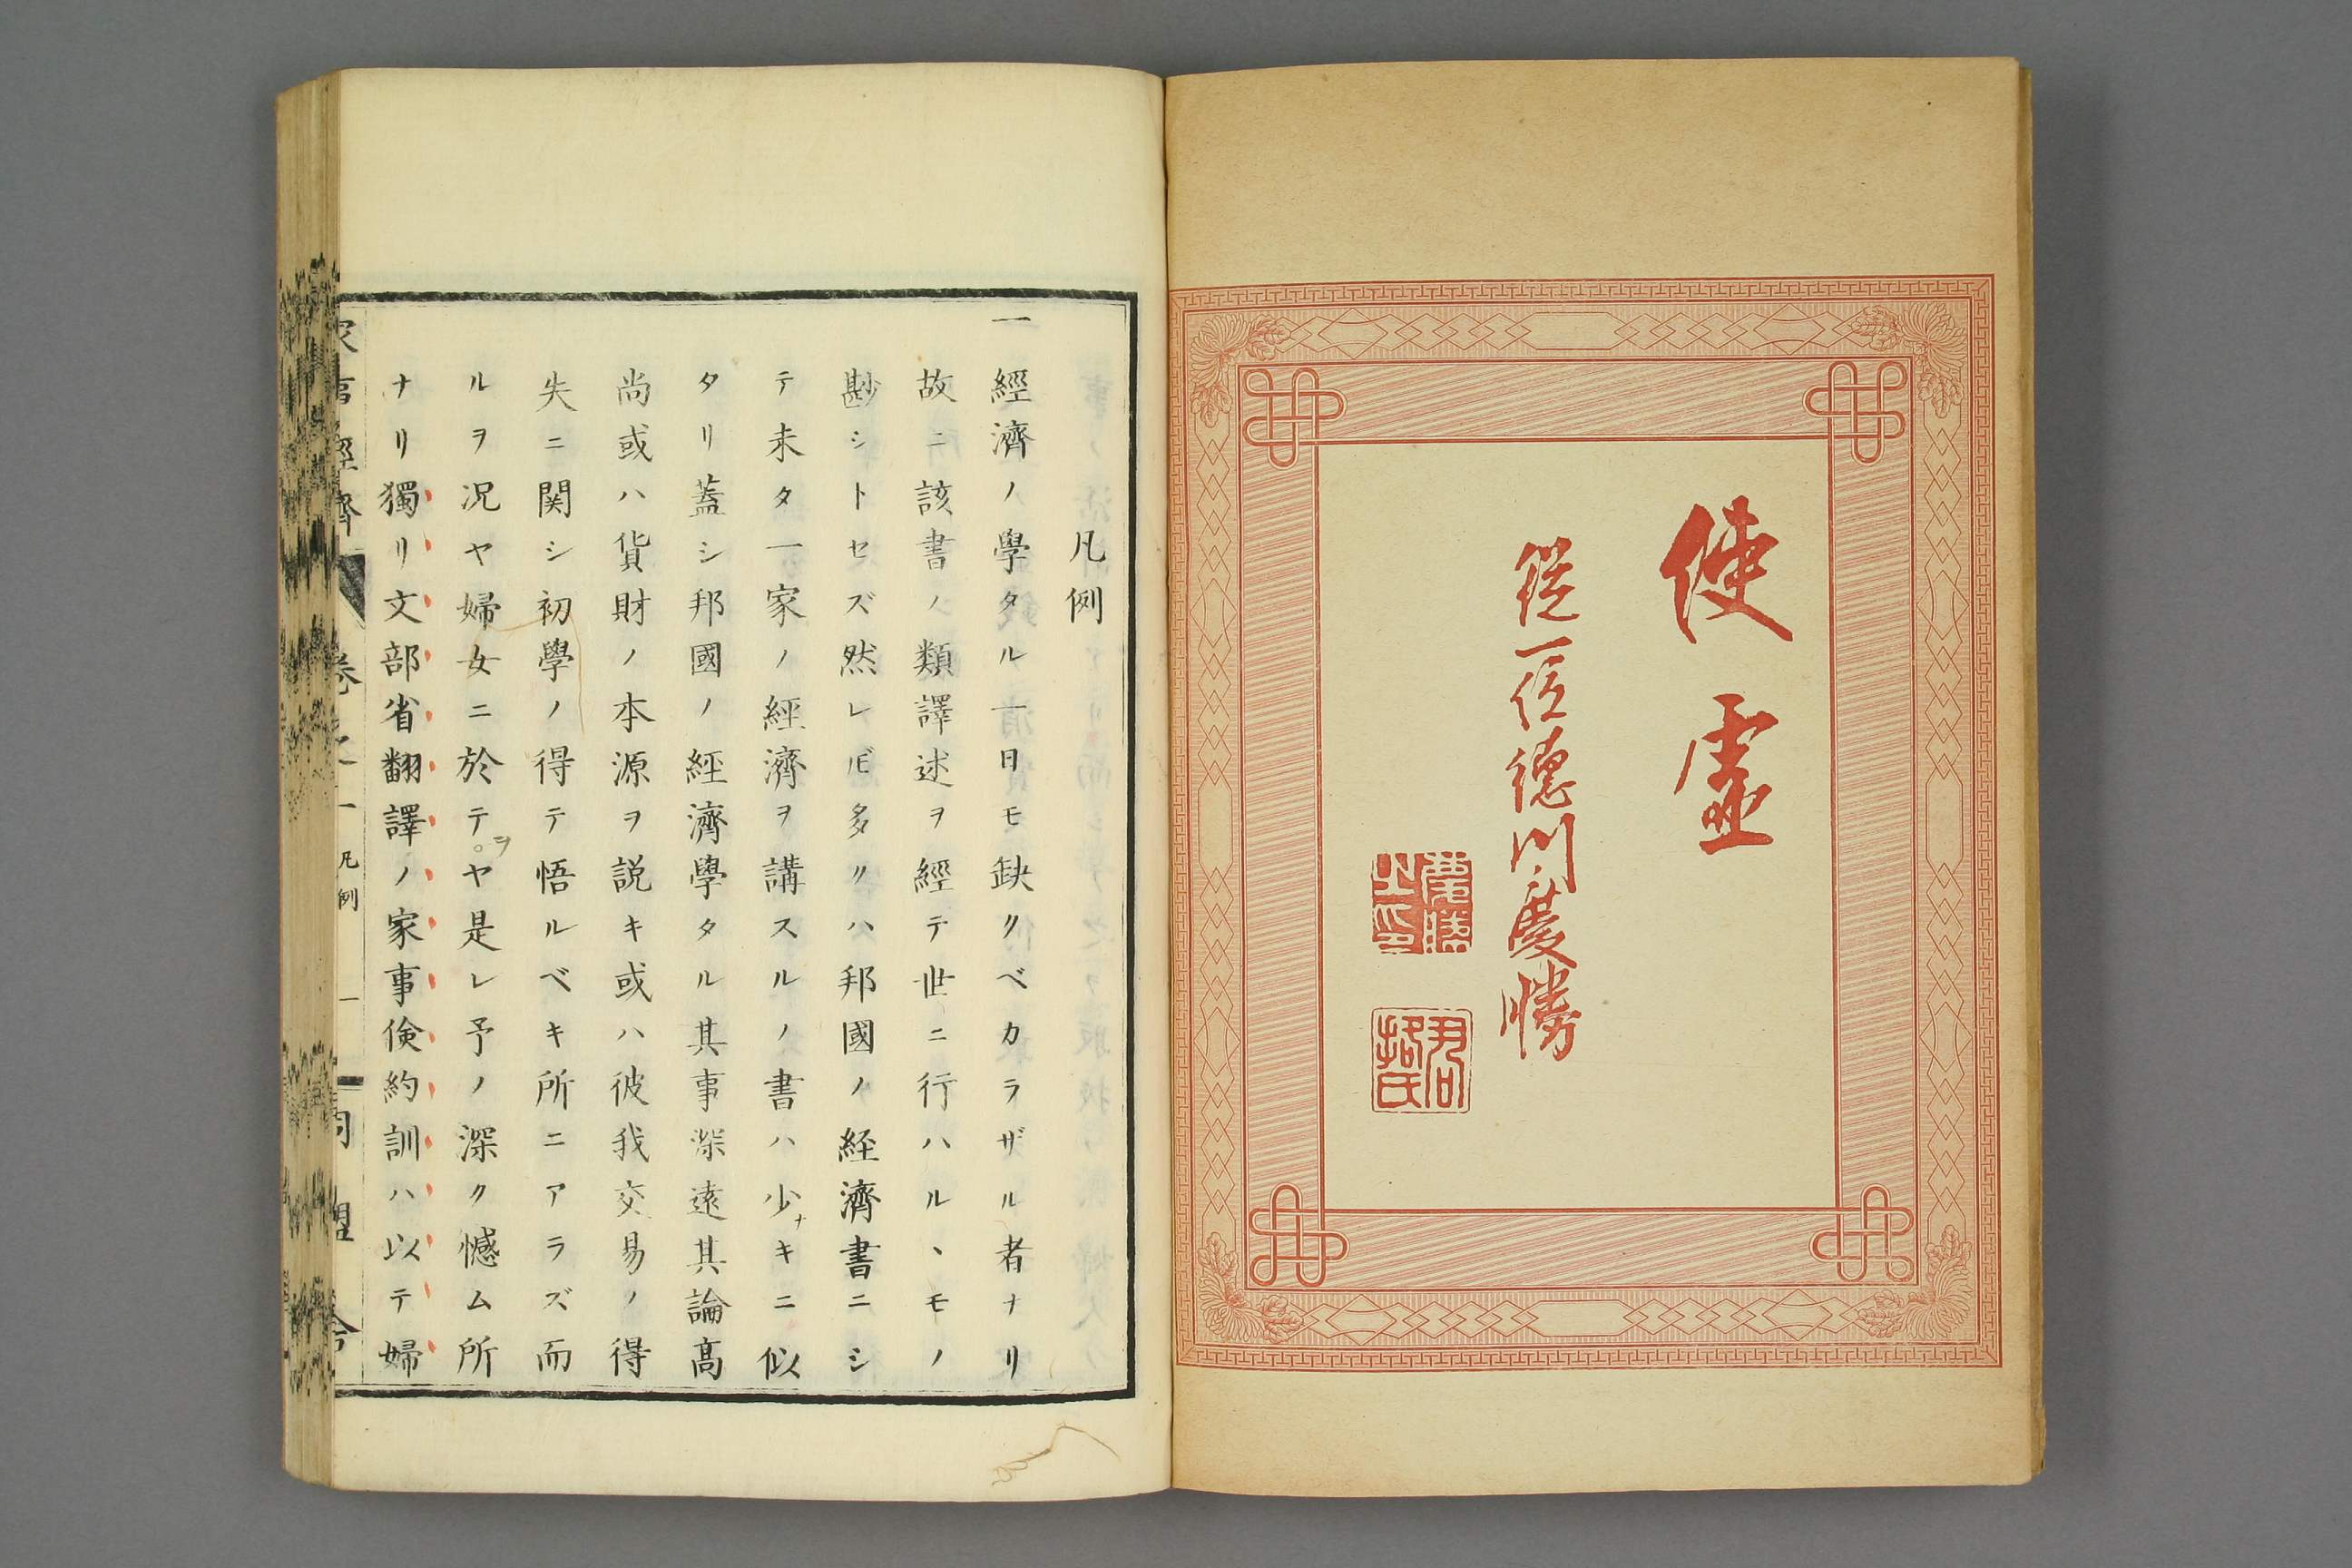 使虚
從一位德川慶勝
慶勝之印
凡例
一經濟ノ學タル一日モ缺クベカラザル者ナリ
故ニ該書ノ類譯述ヲ經テ世ニ行ハルヽモノ
尠シトセズ然レ𪜈多クハ邦國ノ経濟書ニシ
テ未タ一家ノ經濟ヲ講スルノ書ハ少ナキニ似
タリ蓋シ邦國ノ經濟學タル其事深遠其論高
尚或ハ貨財ノ本源ヲ説キ或ハ彼我交易ノ得
失ニ関シ初學ノ得テ悟ルベキ所ニアラズ而
ルヲ况ヤ婦女ニ於テヲヤ是レ予ノ深ク憾ム所
ナリ獨リ文部省翻譯ノ家事倹約訓ハ以テ婦
家事經濟 卷之一 凡例 一